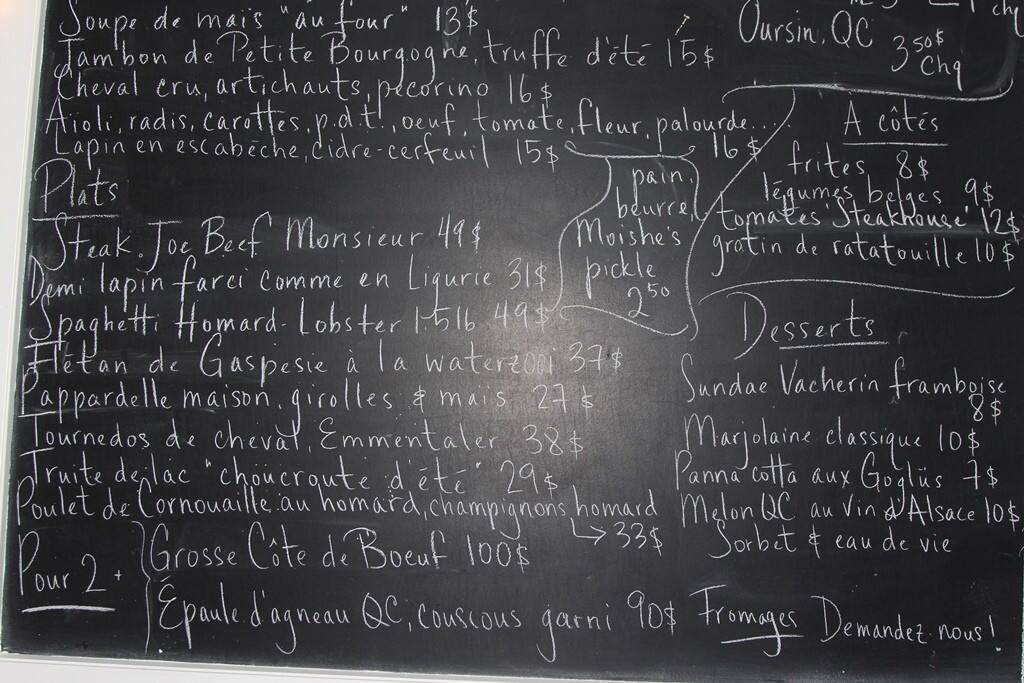 Soupe de maïs "au four" 13$
Jambon de Petite Bourgogne, truffe d'été 15$
Cheval cru, artichauts, pecorino 16$
Aïoli, radis, carottes, p.d.t., oeuf, tomate, fleur, palourde.... 16$
Lapin en escabèche, cidre-cerfeuil 15$
Plats
Steak Joe Beef Monsieur 49$
Demi lapin farci comme en Ligurie 31$
Spaghetti Homard-Lobster 1.5lb 49$
Flétan de Gaspesie à la waterzooi 37$
Pappardelle maison, girolles & maïs 27$
Tournedos de cheval, Emmentaler 38$
Truite de lac "choucroute d'été" 29$
Poulet de Cornouaille au homard, champignons homard
→ 33$
Pour 2+
Grosse Côte de Boeuf 100$
Épaule d'agneau QC, couscous garni 90$
pain,
beurre,
Moishe's
pickle
2 50
chq
Oursin, QC
3 50$
chq
A côtés
frites 8$
légumes belges 9$
tomates "Steakhouse" 12$
gratin de ratatouille 10$
Desserts
Sundae Vacherin framboise
8$
Marjolaine classique 10$
Panna cotta aux Goglüs 7$
Melon QC au vin d'Alsace 10$
Sorbet & eau de vie
Fromages Demandez-nous!